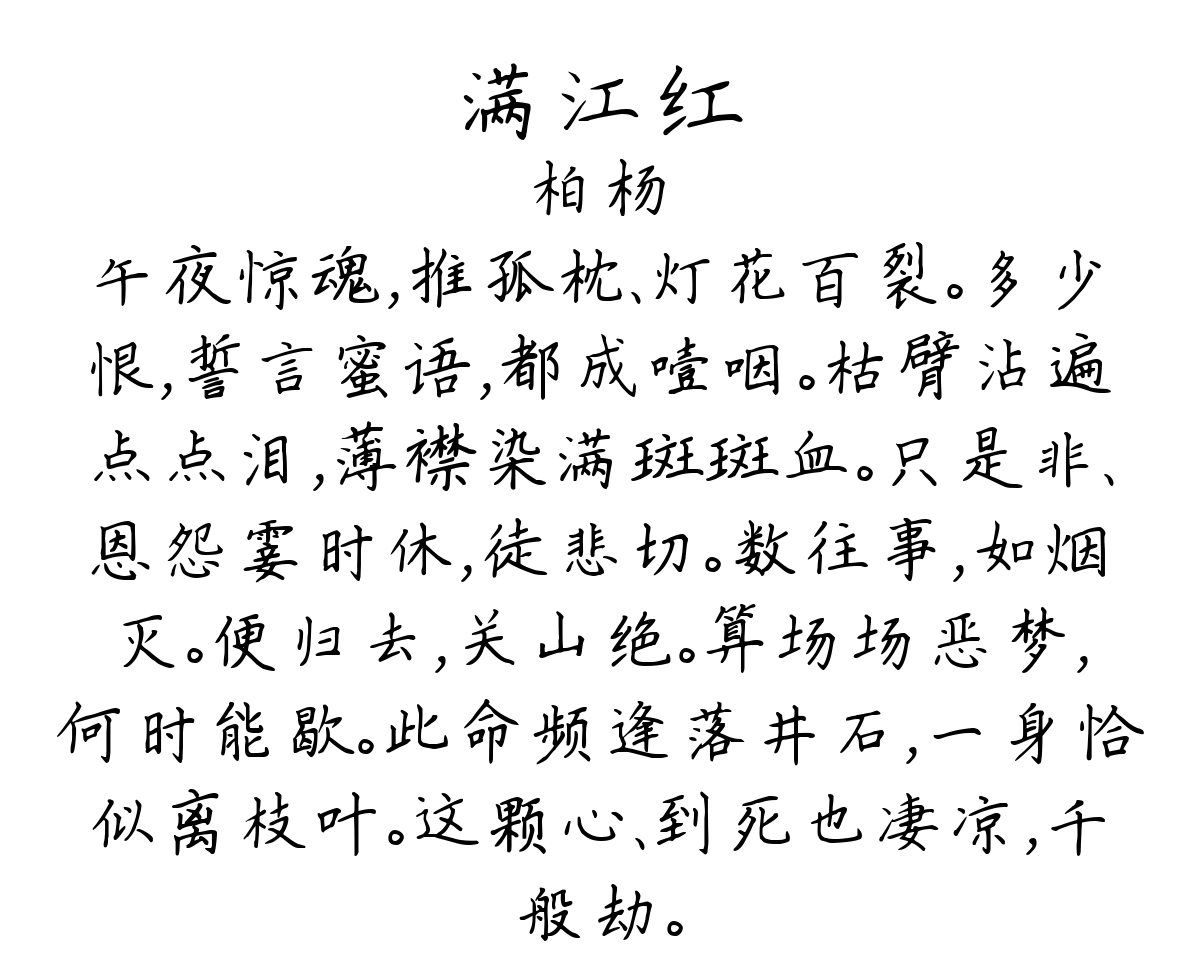 满江红
柏杨
午夜惊魂,推孤枕、灯花百裂。多少
恨,誓言蜜语,都成噎咽。枯臂沾遍
点点泪,薄襟染满斑斑血。只是非、
恩怨霎时休,徒悲切。数往事,如烟
灭。便归去,关山绝。算场场恶梦,
何时能歇。此命频逢落井石,一身恰
似离枝叶。这颗心、到死也凄凉,千
般劫。